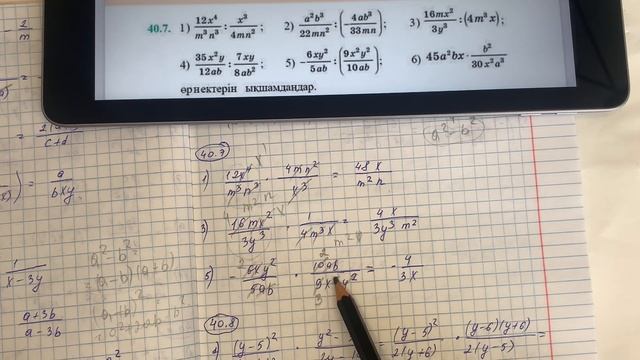 40.7. 1) 12x⁴/m³n³ : x³/4mn² ; 2) a²b³/22mn² : (−4ab³/33mn) ; 3) 16mx²/3y³ : (4m³x) ;
4) 35x²y/12ab : 7xy/8ab² ; 5) −6xy²/5ab : (9x²y²/10ab) ; 6) 45a²bx · b²/30x²a³
өрнектерін ықшамдаңдар.
a² − b²
c+d
) = a/bxy
1/(x−3y)
(a+3b)/(a−3b)
40.7
1) 12x⁴/m³n³ · 4mn²/x³ = 48x/m²n
3) 16mx²/3y³ · 1/4m³x = 4x/3y³m²
5) −6xy²/5ab · 10ab/9x²y² = −4/3x
a² − b²
(a−b)(a+b)
40.8
(y−5)²/ · y²− / = (y−5)²/2(y+6) · (y−6)(y+6)/2(y−5) =